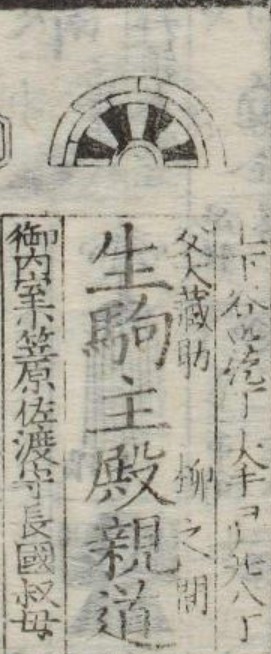 父大蔵助 柳之間
生駒主殿親道
御内室小笠原佐渡守長國叔母